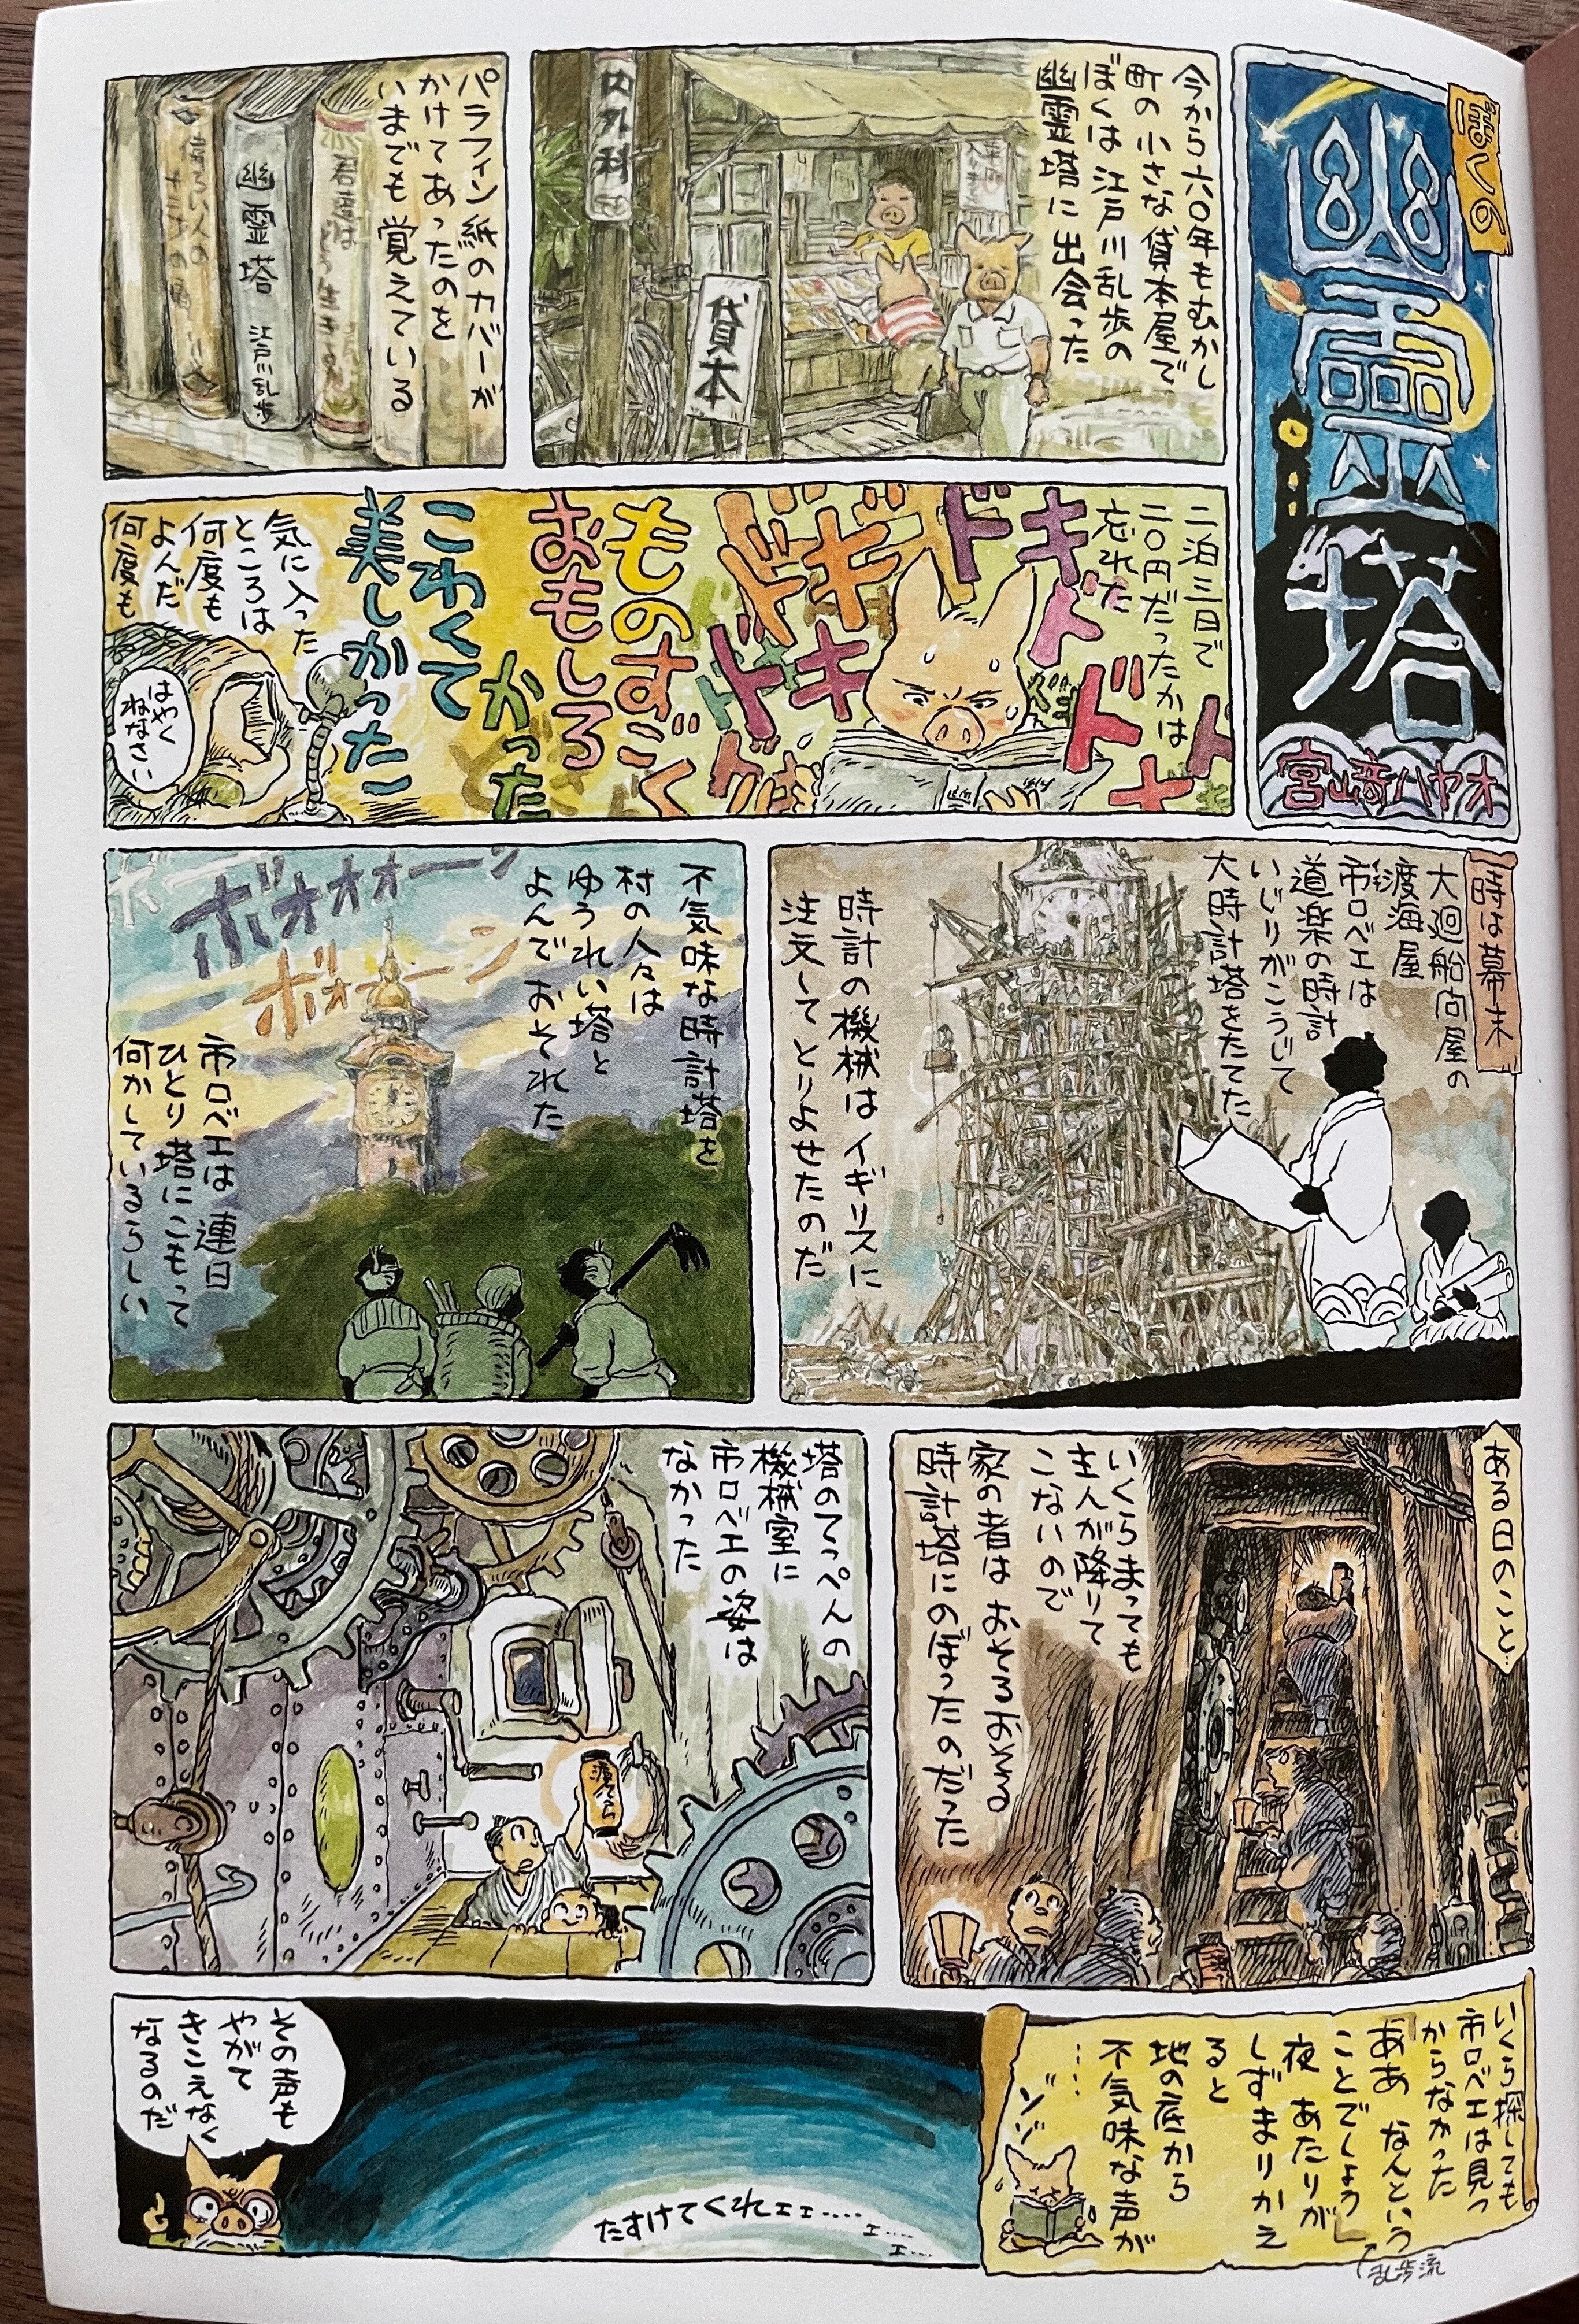 ぼくの
幽霊塔
宮崎ハヤオ
今から六〇年もむかし
町の小さな貸本屋で
ぼくは江戸川乱歩の
幽霊塔に出会った
内外科
貸本
パラフィン紙のカバーが
かけてあったのを
いまでも覚えている
君たちは
幽霊塔 江戸川乱歩
二泊三日で
二〇円だったかは
忘れた
ドキドキ
ドド
ドキドキ
ドキ
ものすごく
おもしろ
かった
こわくて
美しかった
気に入った
ところは
何度も
よんだ
何度も
はやく
ねなさい
時は幕末
大廻船問屋の
渡海屋
市ロベエは
道楽の時計
いじりがこうじて
大時計塔をたてた
時計の機械はイギリスに
注文してとりよせたのだ
不気味な時計塔を
村の人々は
ゆうれい塔と
よんでおそれた
ボオォォーン
ボォーン
市ロベエは連日
ひとり塔にこもって
何かしているらしい
ある日のこと…
いくらまっても
主人が降りて
こないので
家の者はおそるおそる
時計塔にのぼったのだった
塔のてっぺんの
機械室に
市ロベエの姿は
なかった
いくら探しても
市ロベエは見つ
からなかった
「ああ なんという
ことでしょう」
乱歩流
夜 あたりが
しずまりかえ
ると
地の底から
不気味な声が
……
ゾゾ〜
たすけてくれェェ‥‥
ェ‥‥
ェ‥‥
その声も
やがて
きこえなく
なるのだ